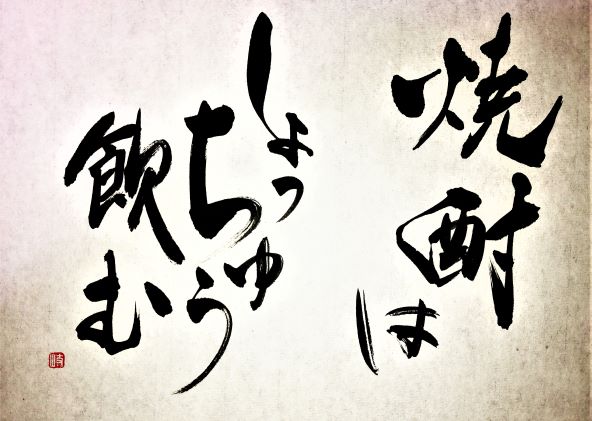 焼酎は
しょっ
ちゅう
飲む